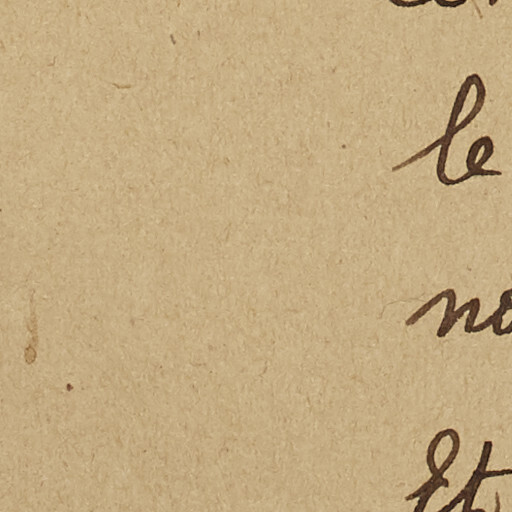 le
no
Et